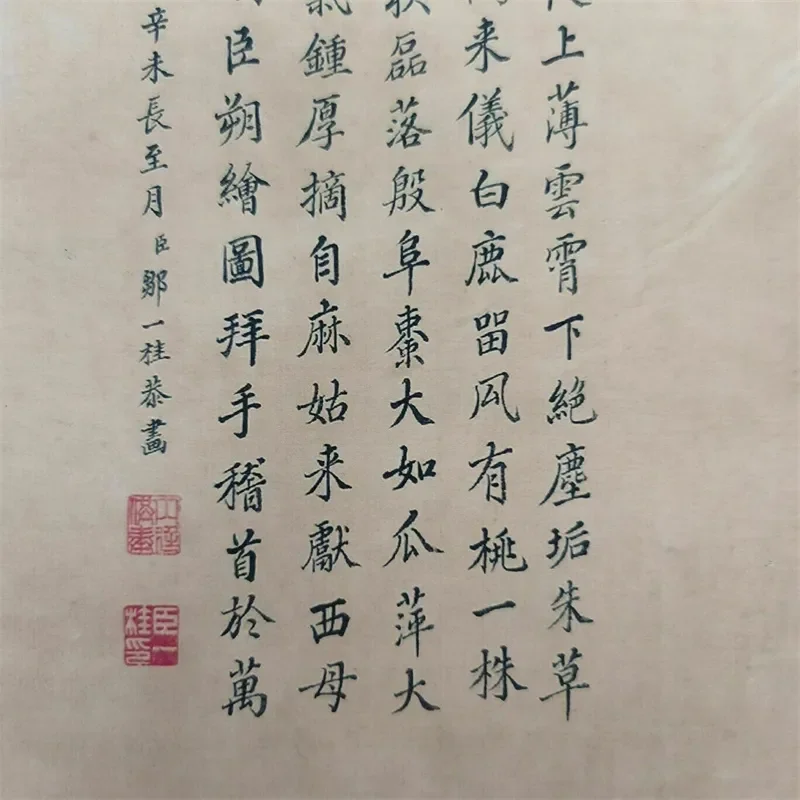 上薄雲霄下絕塵垢朱草
来儀白鹿畄凨有桃一株
磊落殷阜棗大如瓜萍大
鍾厚摘自麻姑来獻西母
臣朔繪圖拜手稽首於萬
辛未長至月臣鄒一桂恭畫
臣一桂印